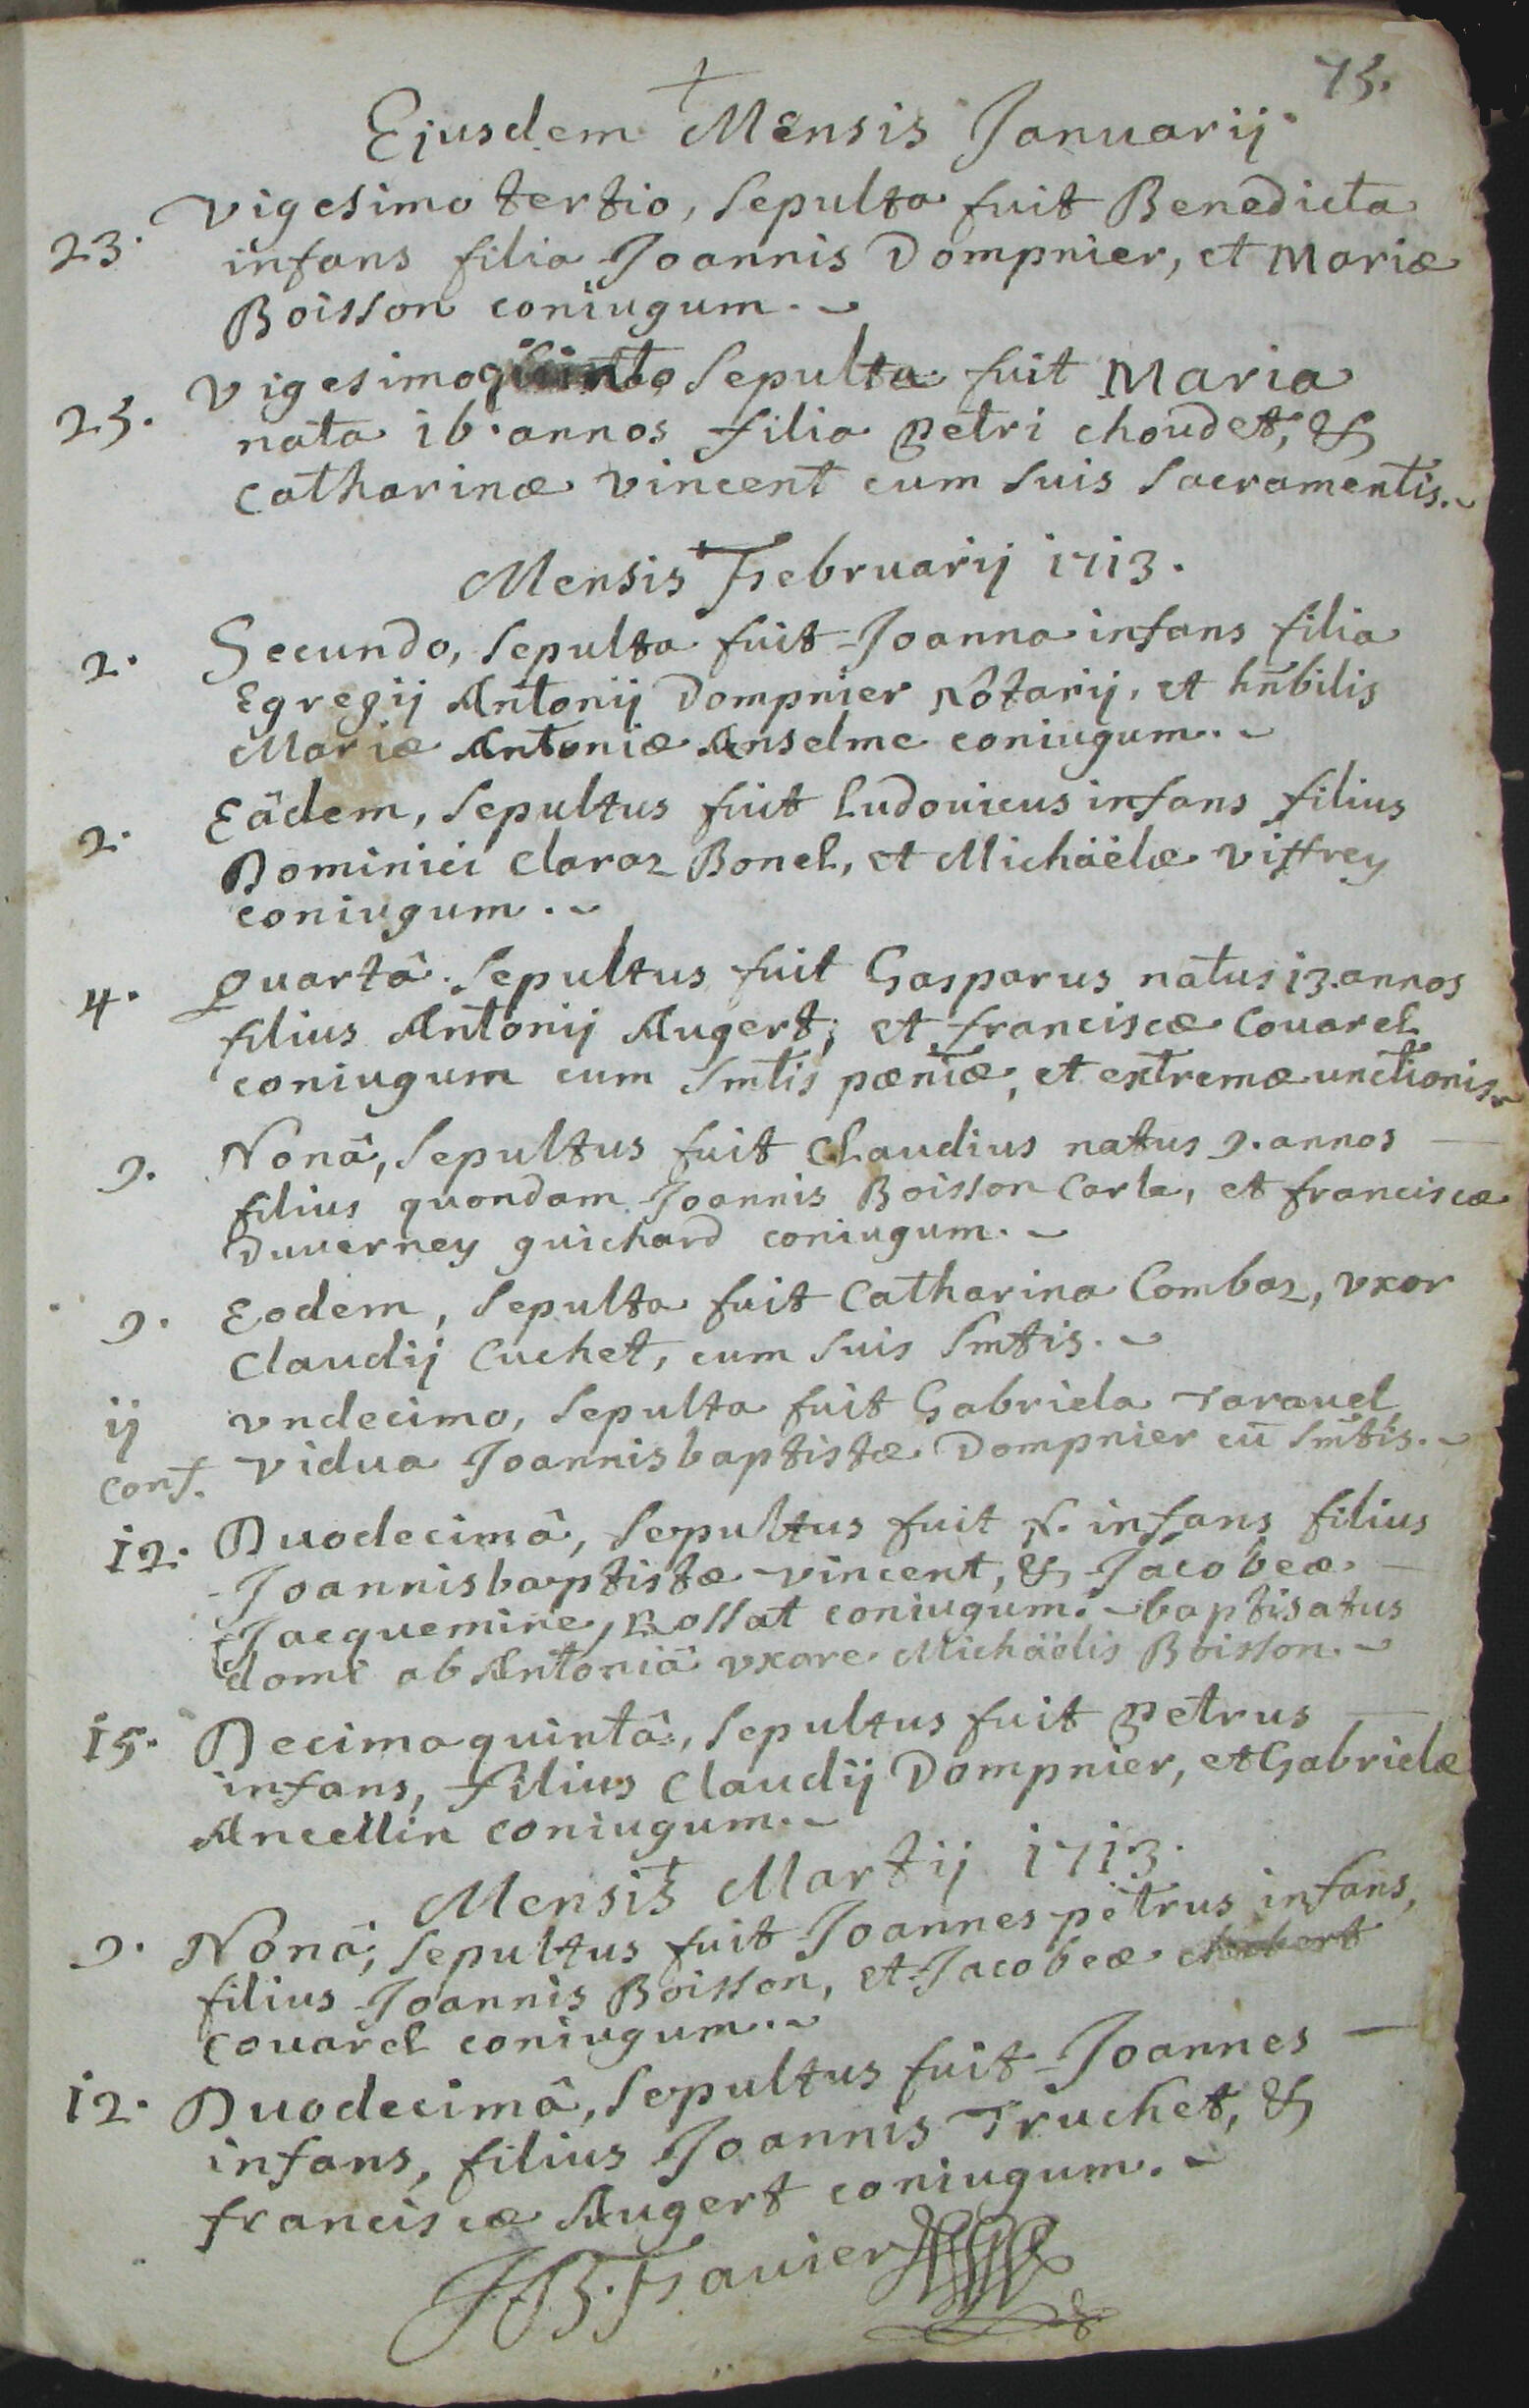 75.
Ejusdem Mensis Januarij
23. Vigesimo tertio, sepulta fuit Benedicta
infans filia Joannis Dompnier, et Mariæ
Boisson coniugum.
25. Vigesimoquinto sepulta fuit Maria
nata 16 annos filia Petri choudet, &
Catharinæ vincent cum suis sacramentis.
Mensis Februarij 1713.
2. Secundo, sepulta fuit Joanna infans filia
Egregij Antonij Dompnier Notarij, et hn̄bilis
Mariæ Antoniæ Anselme coniugum.
2. Eâdem, sepultus fuit Ludouicus infans filius
Dominici Claraz Bonel, et Michäelæ viffrey
coniugum.
4. Quartâ sepultus fuit Gasparus natus 13. annos
filius Antonij Augert, et franciscæ Couarel
coniugum cum smtis pæniæ, et extremæ unctionis.
9. Nonâ, sepultus fuit Claudius natus 9. annos
filius quondam Joannis Boisson Carla, et franciscæ
Duverney guichard coniugum.
9. Eodem, sepulta fuit Catharina Combaz, vxor
Claudij Cuchet, cum suis smtis.
ij Vndecimo, sepulta fuit Gabriela Taravel
conf. vidua Joannisbaptistæ Dompnier cū smtis.
12. Duodecimâ, sepultus fuit N. infans filius
Joannisbaptistæ vincent, & Jacobeæ
Jacquemine, Rossat coniugum. baptisatus
domi ab Antoniâ vxore Michäelis Boisson.
15. Decimaquintâ, sepultus fuit Petrus
infans, filius Claudij Dompnier, et Gabrielæ
Ancellin coniugum.
Mensis Martij 1713.
9. Nonâ, sepultus fuit Joannes petrus infans,
filius Joannis Boisson, et Jacobeæ
Couarel coniugum.
12. Duodecimâ, sepultus fuit Joannes
infans, filius Joannis Truchet, &
franciscæ Augert coniugum.
JB. Favier